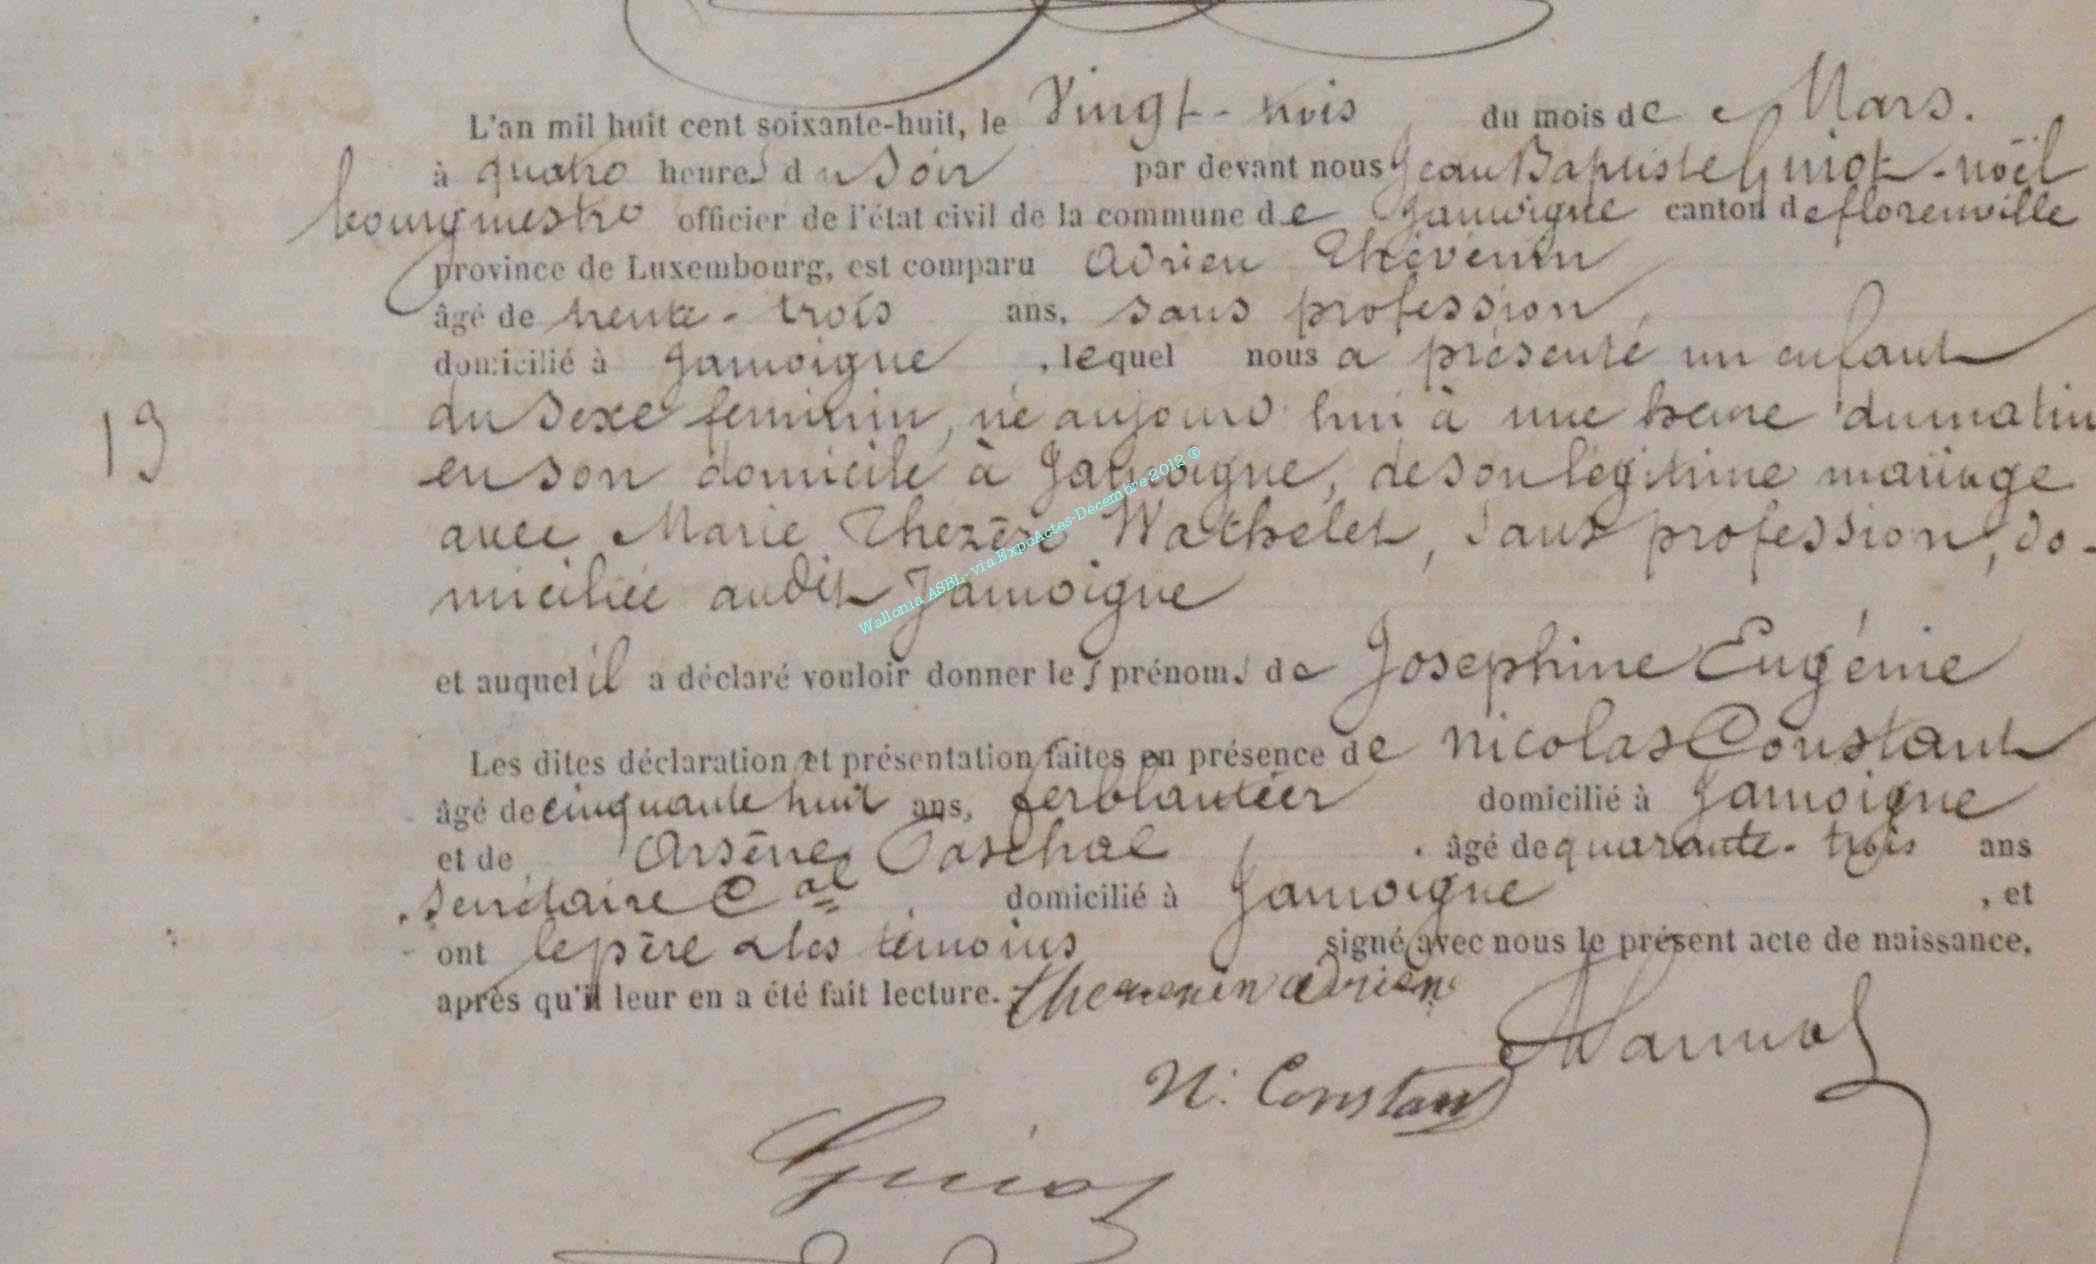 L'an mil huit cent soixante-huit, le Vingt-trois du mois de Mars.
à quatre heures du Soir par devant nous Jean Baptiste Guiot-noël
bourgmestre officier de l'état civil de la commune de Jamoigne canton de florenville
province de Luxembourg, est comparu Adrien Thévenin
âgé de trente-trois ans, sans profession
domicilié à Jamoigne, lequel nous a présenté un enfant
du sexe feminin, né aujourd'hui à une heure du matin
13
en son domicile à Jamoigne, de son légitime mariage
avec Marie Thezèse Wathelet, sans profession, do-
miciliée audit Jamoigne
Wallonia ASBL- via ExpoActes-Decembre 2012 ®
et auquel il a déclaré vouloir donner les prénoms de Josephine Eugénie
Les dites déclaration et présentation faites en présence de Nicolas Constant
âgé de cinquante huit ans, ferblantier domicilié à Jamoigne
et de Arsène Paschal âgé de quarante-trois ans
Secrétaire Cal domicilié à Jamoigne, et
ont le père & les témoins signé avec nous le présent acte de naissance,
après qu'il leur en a été fait lecture. thevenin adrien
N. Constant
Guiot